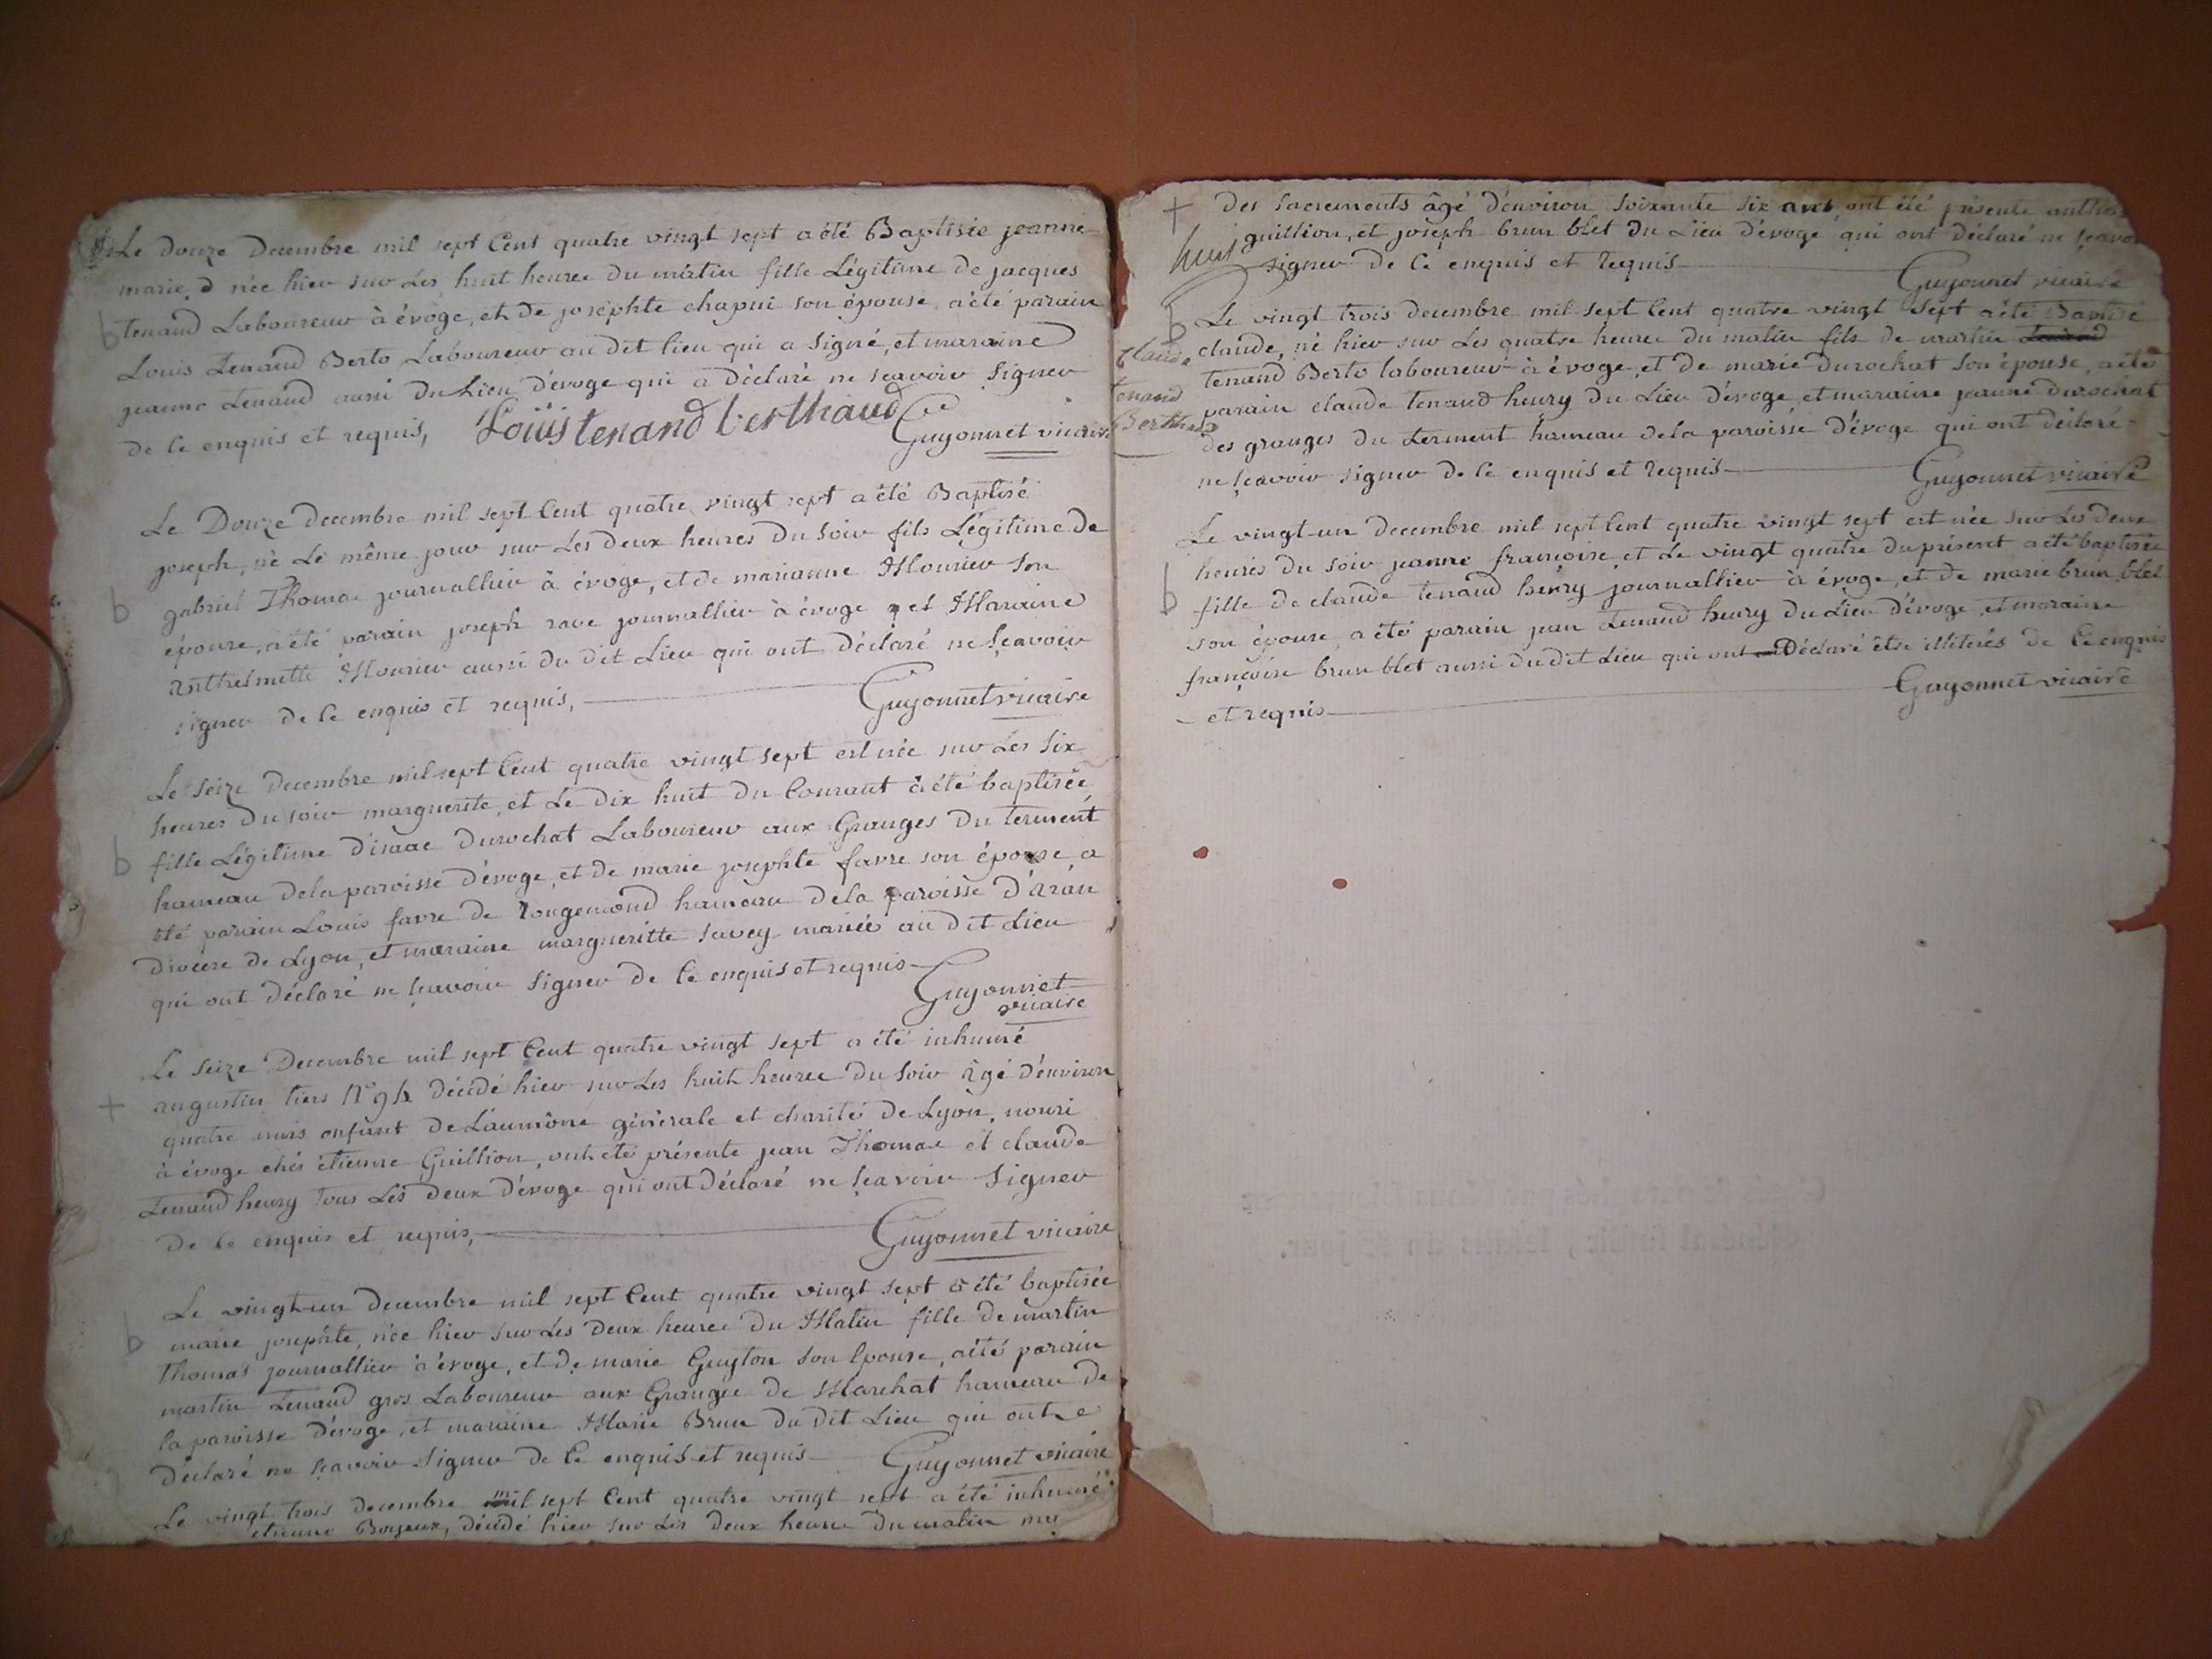 Le douze Decembre mil sept Cent quatre vingt sept a été Baptisée jeanne
marie née hier sur Les huit heures du matin fille Légitime de jacques
b
tenand Laboureur à évoge, et de josephte chapui son épouse, a été parain
Louis Tenand Berto Laboureur au dit lieu qui a Signé, et maraine
jeanne Tenand aussi du Lieu d'évoge qui a déclaré ne scavoir Signer
de ce enquis et requis, Loüis tenand berthaud
Guyonnet vicaire
Le Douze decembre mil sept Cent quatre vingt sept a été Baptisé
joseph, né Le même jour sur Les deux heures du soir fils Légitime de
b
gabriel Thomas journallier à évoge, et de marianne Mourier son
épouse, a été parain joseph rave journallier à évoge et Maraine
anthelmette Mourier aussi du dit Lieu qui ont déclaré ne sçavoir
signer de ce enquis et requis,
Guyonnet vicaire
Le Seize decembre mil sept Cent quatre vingt sept est née sur Les Six
heures du soir marguerite, et Le Dix huit du Courant a été baptisée
b
fille Légitime d'isaac Durochat Laboureur aux Granges du terment
hameau de la paroisse d'évoge, et de marie josephte favre son épouse, a
été parain Louis favre de rougemond hameau de la paroisse d'aran
diocèse de Lyon, et maraine margueritte savey mariée au dit Lieu
qui ont déclaré ne sçavoir Signer de ce enquis et requis
Guyonnet
vicaire
Le Seize Decembre mil sept Cent quatre vingt sept a été inhumé
+
augustin tiers N° 94 décédé hier sur Les huit heures du Soir âgé d'environ
quatre mois enfant de L'aumône générale et charité de Lyon, nouri
à évoge chés étienne Guillion, ont été présents jean Thomas et claude
Tenand henry tous Les deux d'évoge qui ont déclaré ne sçavoir Signer
de ce enquis et requis,
Guyonnet vicaire
Le vingt-un decembre mil sept Cent quatre vingt sept a été baptisée
b
marie josephte, née hier sur Les Deux heures du Matin fille de martin
thomas journallier à évoge, et de marie Guyton son Epouse, a été parain
martin Tenand gros Laboureur aux Granges de Marchat hameau de
la paroisse d'évoge, et maraine Marie Brun du dit Lieu qui ont
déclaré ne sçavoir Signer de Ce enquis et requis Guyonnet vicaire
Le vingt trois decembre mil sept Cent quatre vingt sept a été inhumé
étienne Bojeux, décédé hier sur Les deux heures du matin mu
+
Des sacrements âgé d'environ soixante six ans, ont été présents
guillion, et joseph brun blet du Lieu d'évoge qui ont déclaré ne sçavoir
signer de Ce enquis et requis
Guyonnet vicaire
b
Le vingt trois decembre mil sept Cent quatre vingt sept a été Baptisé
claude, né hier sur Les quatre heures du matin fils de martin
Claude
tenand
Bertheto
tenand Berto laboureur à évoge, et de marie Durochat son épouse, a été
parain claude tenand henry du Lieu d'évoge, et maraine jeanne durochat
des granges du terment hameau de la paroisse d'évoge qui ont déclaré
ne sçavoir signer de Ce enquis et requis
Guyonnet vicaire
Le vingt-un decembre mil sept Cent quatre vingt sept est née sur Les deux
heures du soir jeanne françoise, et Le vingt quatre du présent a été baptisée
b
fille de claude tenand henry journallier à évoge, et de marie brun blet
son épouse, a été parain jean tenand henry du Lieu d'évoge, et maraine
françoise brun blet aussi du dit Lieu qui ont Déclaré être illiterés de Ce enquis
et requis
Guyonnet vicaire